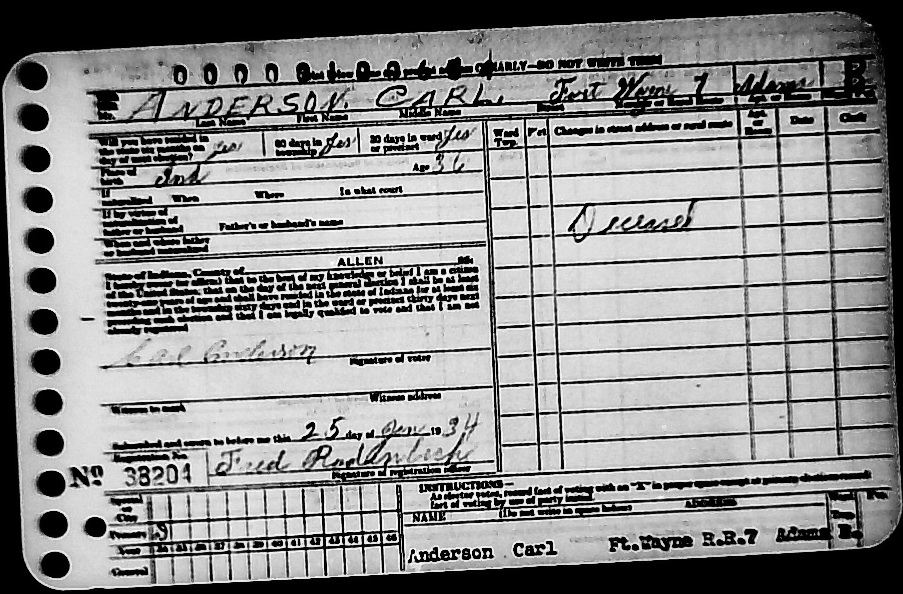 CLEARLY—DO NOT WRITE THESE
Mr. ANDERSON, CARL. Fort Wayne 7 Adams B
Last Name First Name Middle Name Number or Rural Route
Will you have resided in the state six months on day of next election? Yes 60 days in township Yes 30 days in ward or precinct Yes
Place of birth Ind Age 36
If naturalized When Where In what court
If by virtue of naturalization of father or husband Father's or husband's name
When and where father or husband naturalized
Ward Twp. Pct. Changes in street address or rural route Apt. or Room Date Clerk
Deceased
State of Indiana, County of ALLEN SS:
I hereby swear (or affirm) that to the best of my knowledge or belief I am a citizen
of the United States; that on the day of the next general election I shall be at least
twenty-one years of age and shall have resided in the state of Indiana for at least six
months and in the township sixty days and in the ward or precinct thirty days next
election and that I am legally qualified to vote and that I am not
already registered
Carl Anderson
Signature of voter
Witness to mark Witness address
Subscribed and sworn to before me this 25 day of Jan 1934
Registration No. Fred
Nº 38204 Signature of registration officer
Special or City
Primary
Year 34 35 36 37 38 39 40 41 42 43 44 45 46
General
INSTRUCTIONS—
As elector votes, record fact of voting with an "X" in proper space except at primary elections record
fact of voting by use of party initial
NAME (Do not write in space below) ADDRESS Ward Twp. Pct.
Anderson Carl Ft.Wayne R.R.7 Adams B.